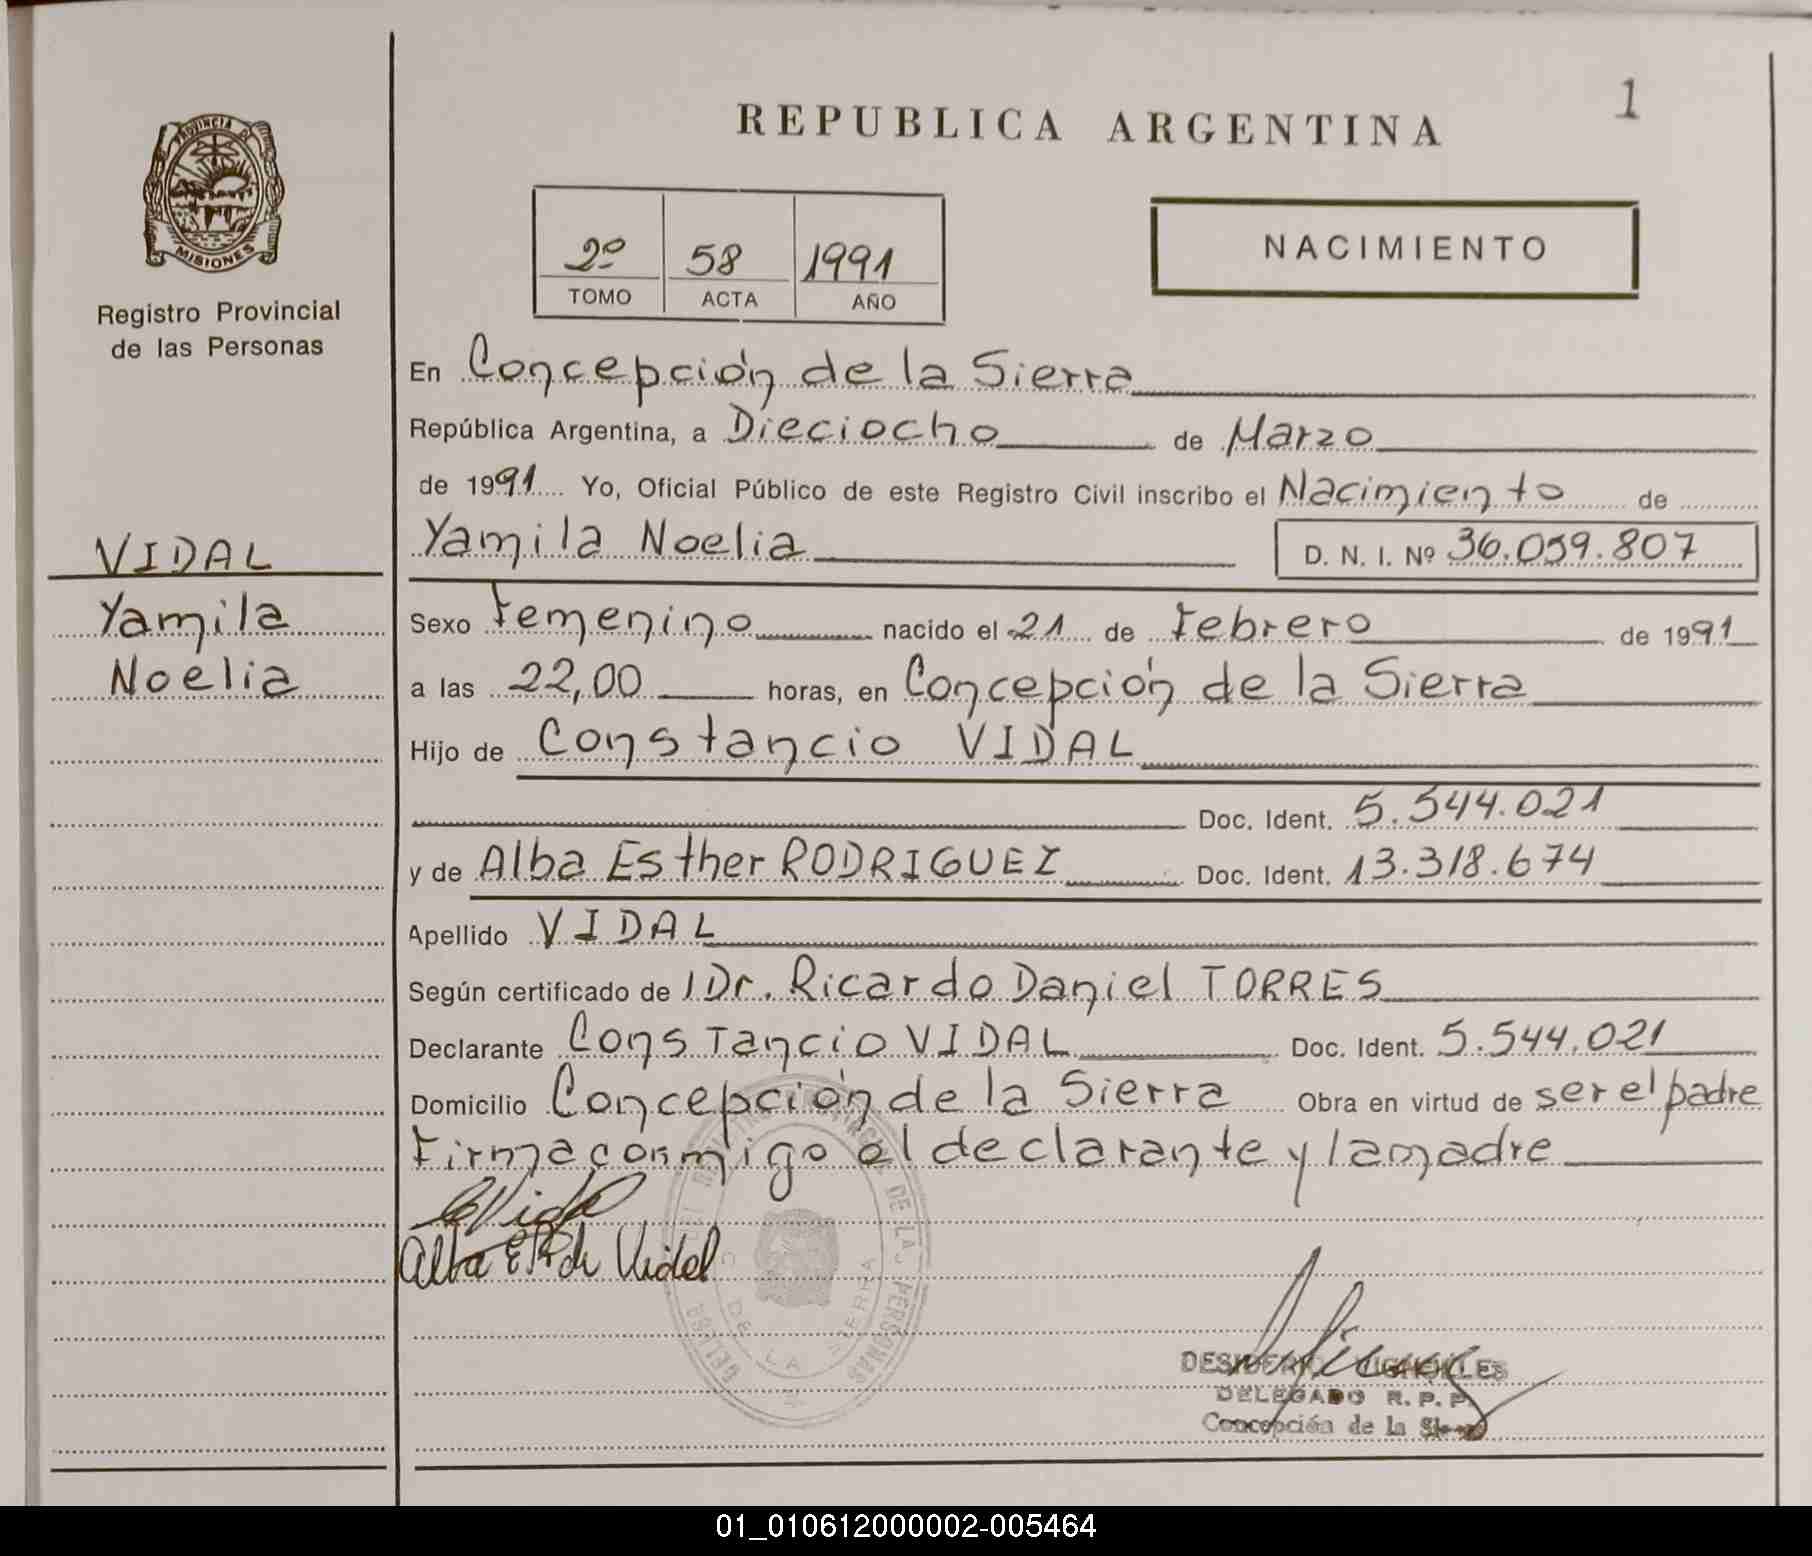 REPUBLICA ARGENTINA
1
PROVINCIA D
MISIONES
Registro Provincial
de las Personas
VIDAL
Yamila
Noelia
2º 58 1991
TOMO ACTA AÑO
NACIMIENTO
En Concepción de la Sierra
República Argentina, a Dieciocho de Marzo
de 1991 Yo, Oficial Público de este Registro Civil inscribo el Nacimiento de
Yamila Noelia D. N. I. Nº 36.059.807
Sexo Femenino nacido el 21 de Febrero de 1991
a las 22,00 horas, en Concepción de la Sierra
Hijo de Constancio VIDAL
Doc. Ident. 5.544.021
y de Alba Esther RODRIGUEZ Doc. Ident. 13.318.674
Apellido VIDAL
Según certificado de / Dr. Ricardo Daniel TORRES
Declarante Constancio VIDAL Doc. Ident. 5.544.021
Domicilio Concepción de la Sierra Obra en virtud de ser el padre
Firma conmigo el declarante y la madre
CVidal
Alba E R de Vidal
DE LAS PERSONAS
DE LA SIERRA
DELEGADO R. P. P.
Concepción de la
01_010612000002-005464